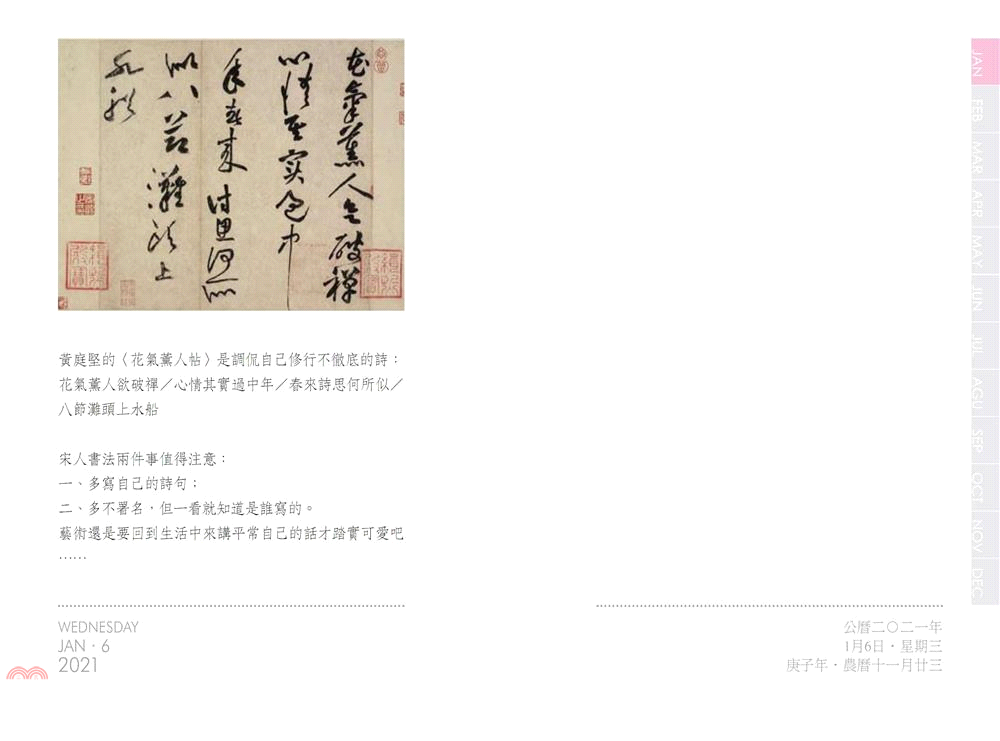 花氣薰人欲破禪
心情其實過中
年春來詩思何所
似八節灘頭上
水船
黃庭堅的〈花氣薰人帖〉是調侃自己修行不徹底的詩：
花氣薰人欲破禪／心情其實過中年／春來詩思何所似／
八節灘頭上水船
宋人書法兩件事值得注意：
一、多寫自己的詩句；
二、多不署名，但一看就知道是誰寫的。
藝術還是要回到生活中來講平常自己的話才踏實可愛吧
……
WEDNESDAY
JAN・6
2021
公曆二〇二一年
1月6日・星期三
庚子年・農曆十一月廿三
JAN
FEB
MAR
APR
MAY
JUN
JUL
AGU
SEP
OCT
NOV
DEC